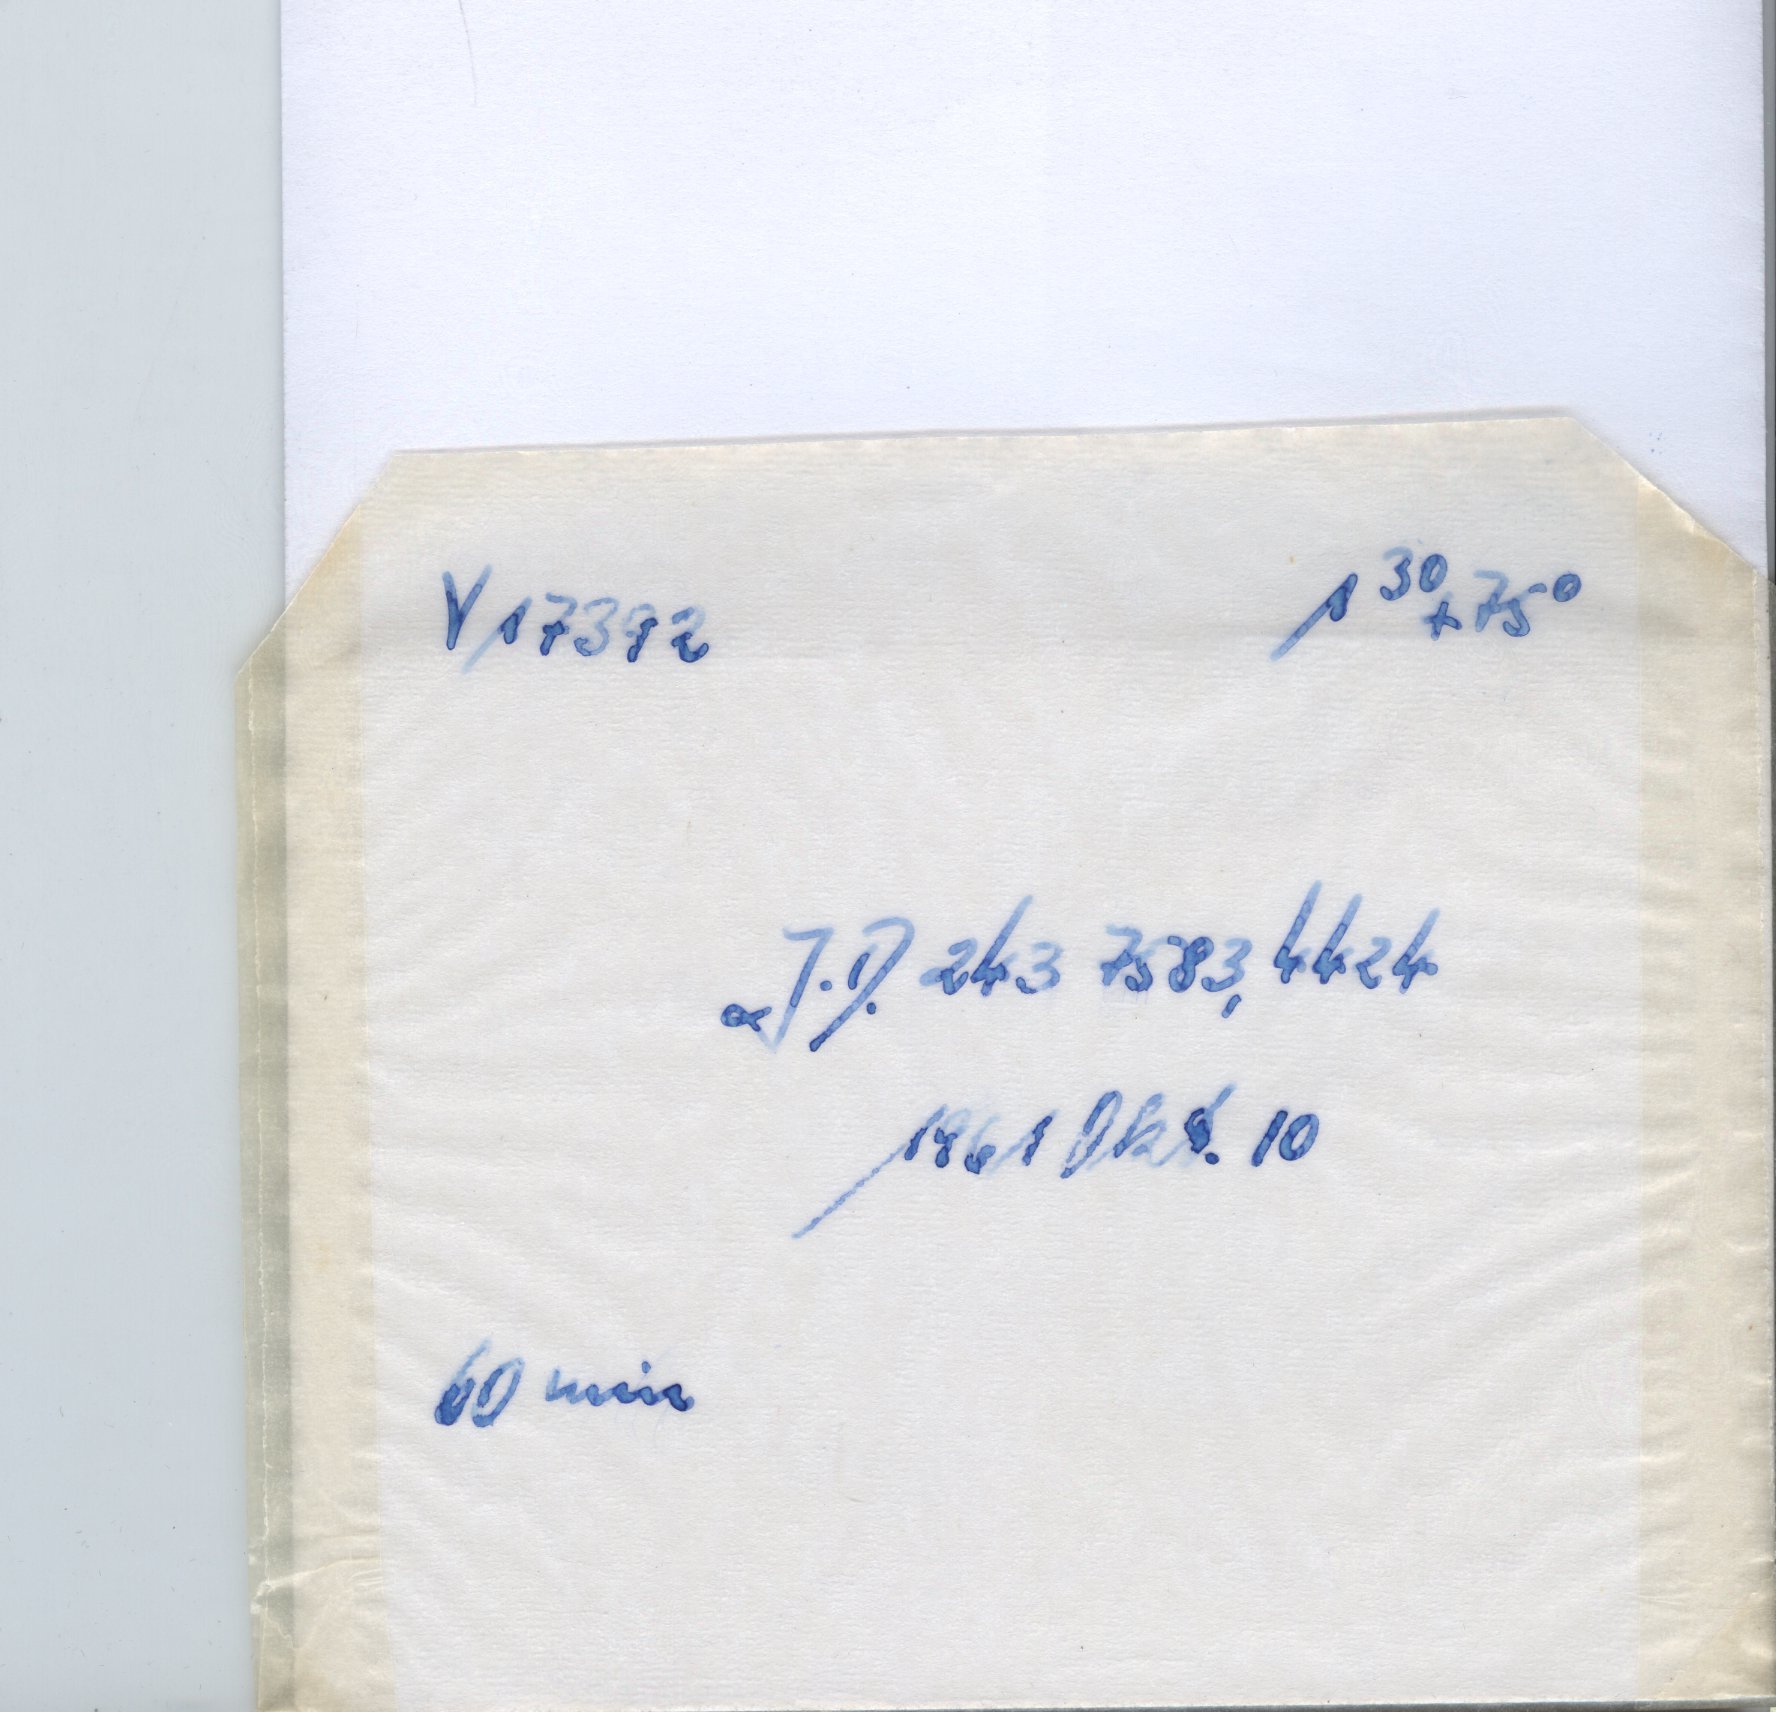 V 17392 1³⁰ +75⁰
J.D. 243 7583,4424
1961 Okt. 10
60 min